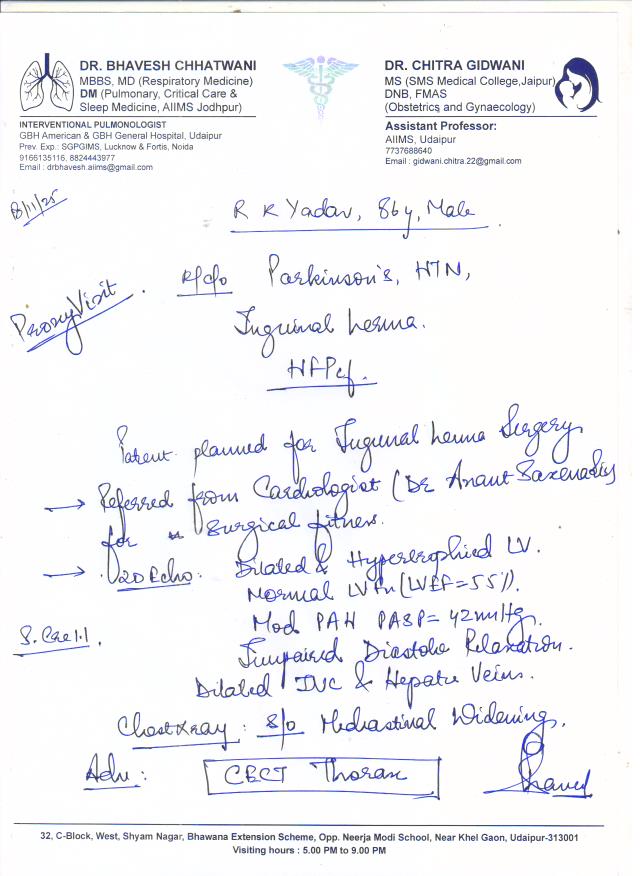 DR. BHAVESH CHHATWANI
MBBS, MD (Respiratory Medicine)
DM (Pulmonary, Critical Care &
Sleep Medicine, AIIMS Jodhpur)
INTERVENTIONAL PULMONOLOGIST
GBH American & GBH General Hospital, Udaipur
Prev. Exp.: SGPGIMS, Lucknow & Fortis, Noida
9166135116, 8824443977
Email : drbhavesh.aiims@gmail.com
DR. CHITRA GIDWANI
MS (SMS Medical College,Jaipur)
DNB, FMAS
(Obstetrics and Gynaecology)
Assistant Professor:
AIIMS, Udaipur
7737688640
Email : gidwani.chitra.22@gmail.com
/11/25
R K Yadav, 86y, Male
Proxy Visit
K/c/o Parkinson's, HTN,
Inguinal hernia.
HFPef.
Patient planned for Inguinal hernia Surgery
→ Referred from Cardiologist (Dr Anant Saxena
for Surgical fitness.
→ 2D Echo: Dilated & Hypertrophied LV.
Normal LV fn (LVEF=55%).
Mod PAH PASP= 42mmHg.
S. Cre 1.1.
Impaired Diastolic Relaxation.
Dilated IVC & Hepatic Veins.
Chest Xray: S/o Mediastinal Widening.
Adv: CECT Thorax
32, C-Block, West, Shyam Nagar, Bhawana Extension Scheme, Opp. Neerja Modi School, Near Khel Gaon, Udaipur-313001
Visiting hours : 5.00 PM to 9.00 PM